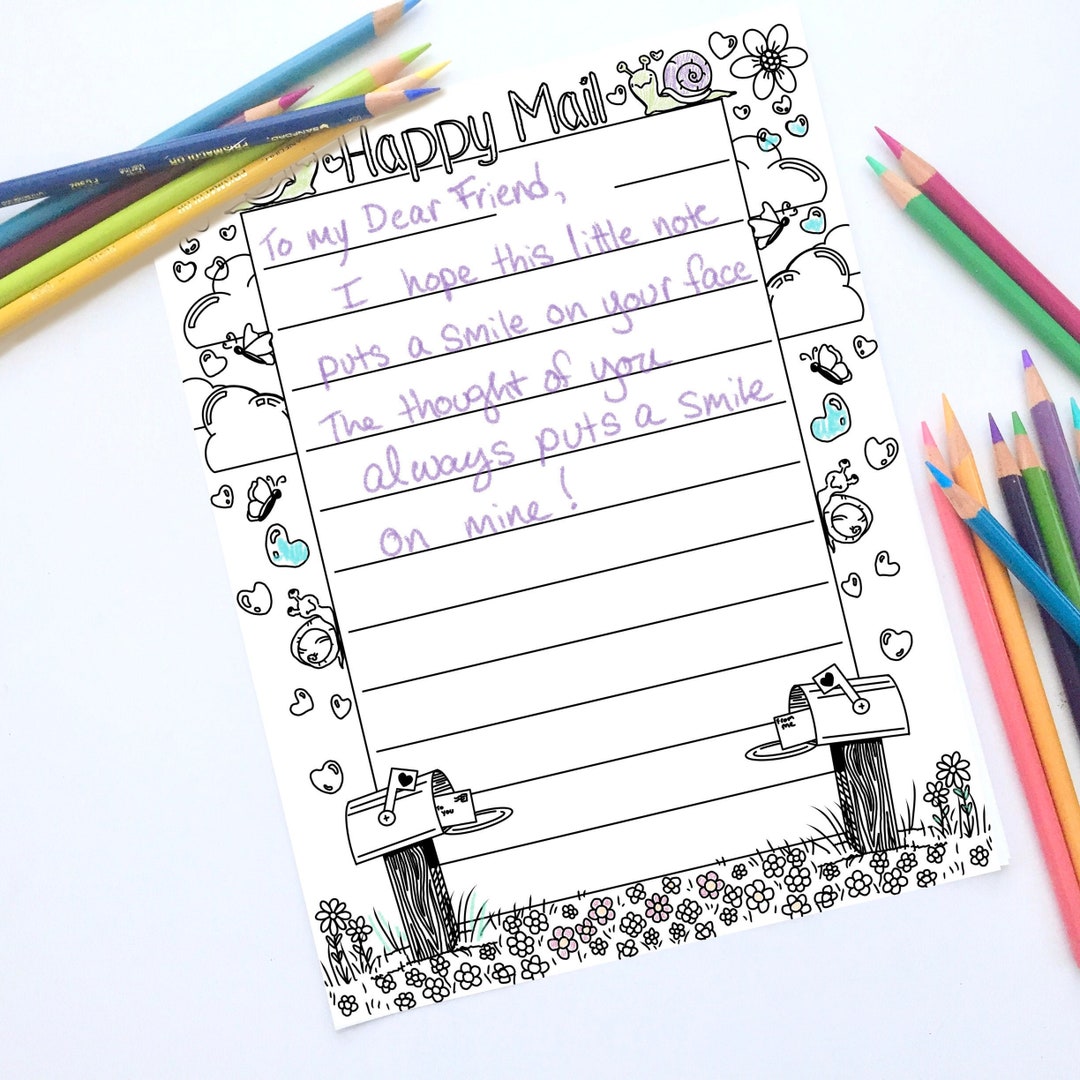 Happy Mail
To my Dear Friend,
I hope this little note
puts a smile on your face
The thought of you
always puts a smile
on mine!
from me
to you
PRISMACOLOR
SANFORD